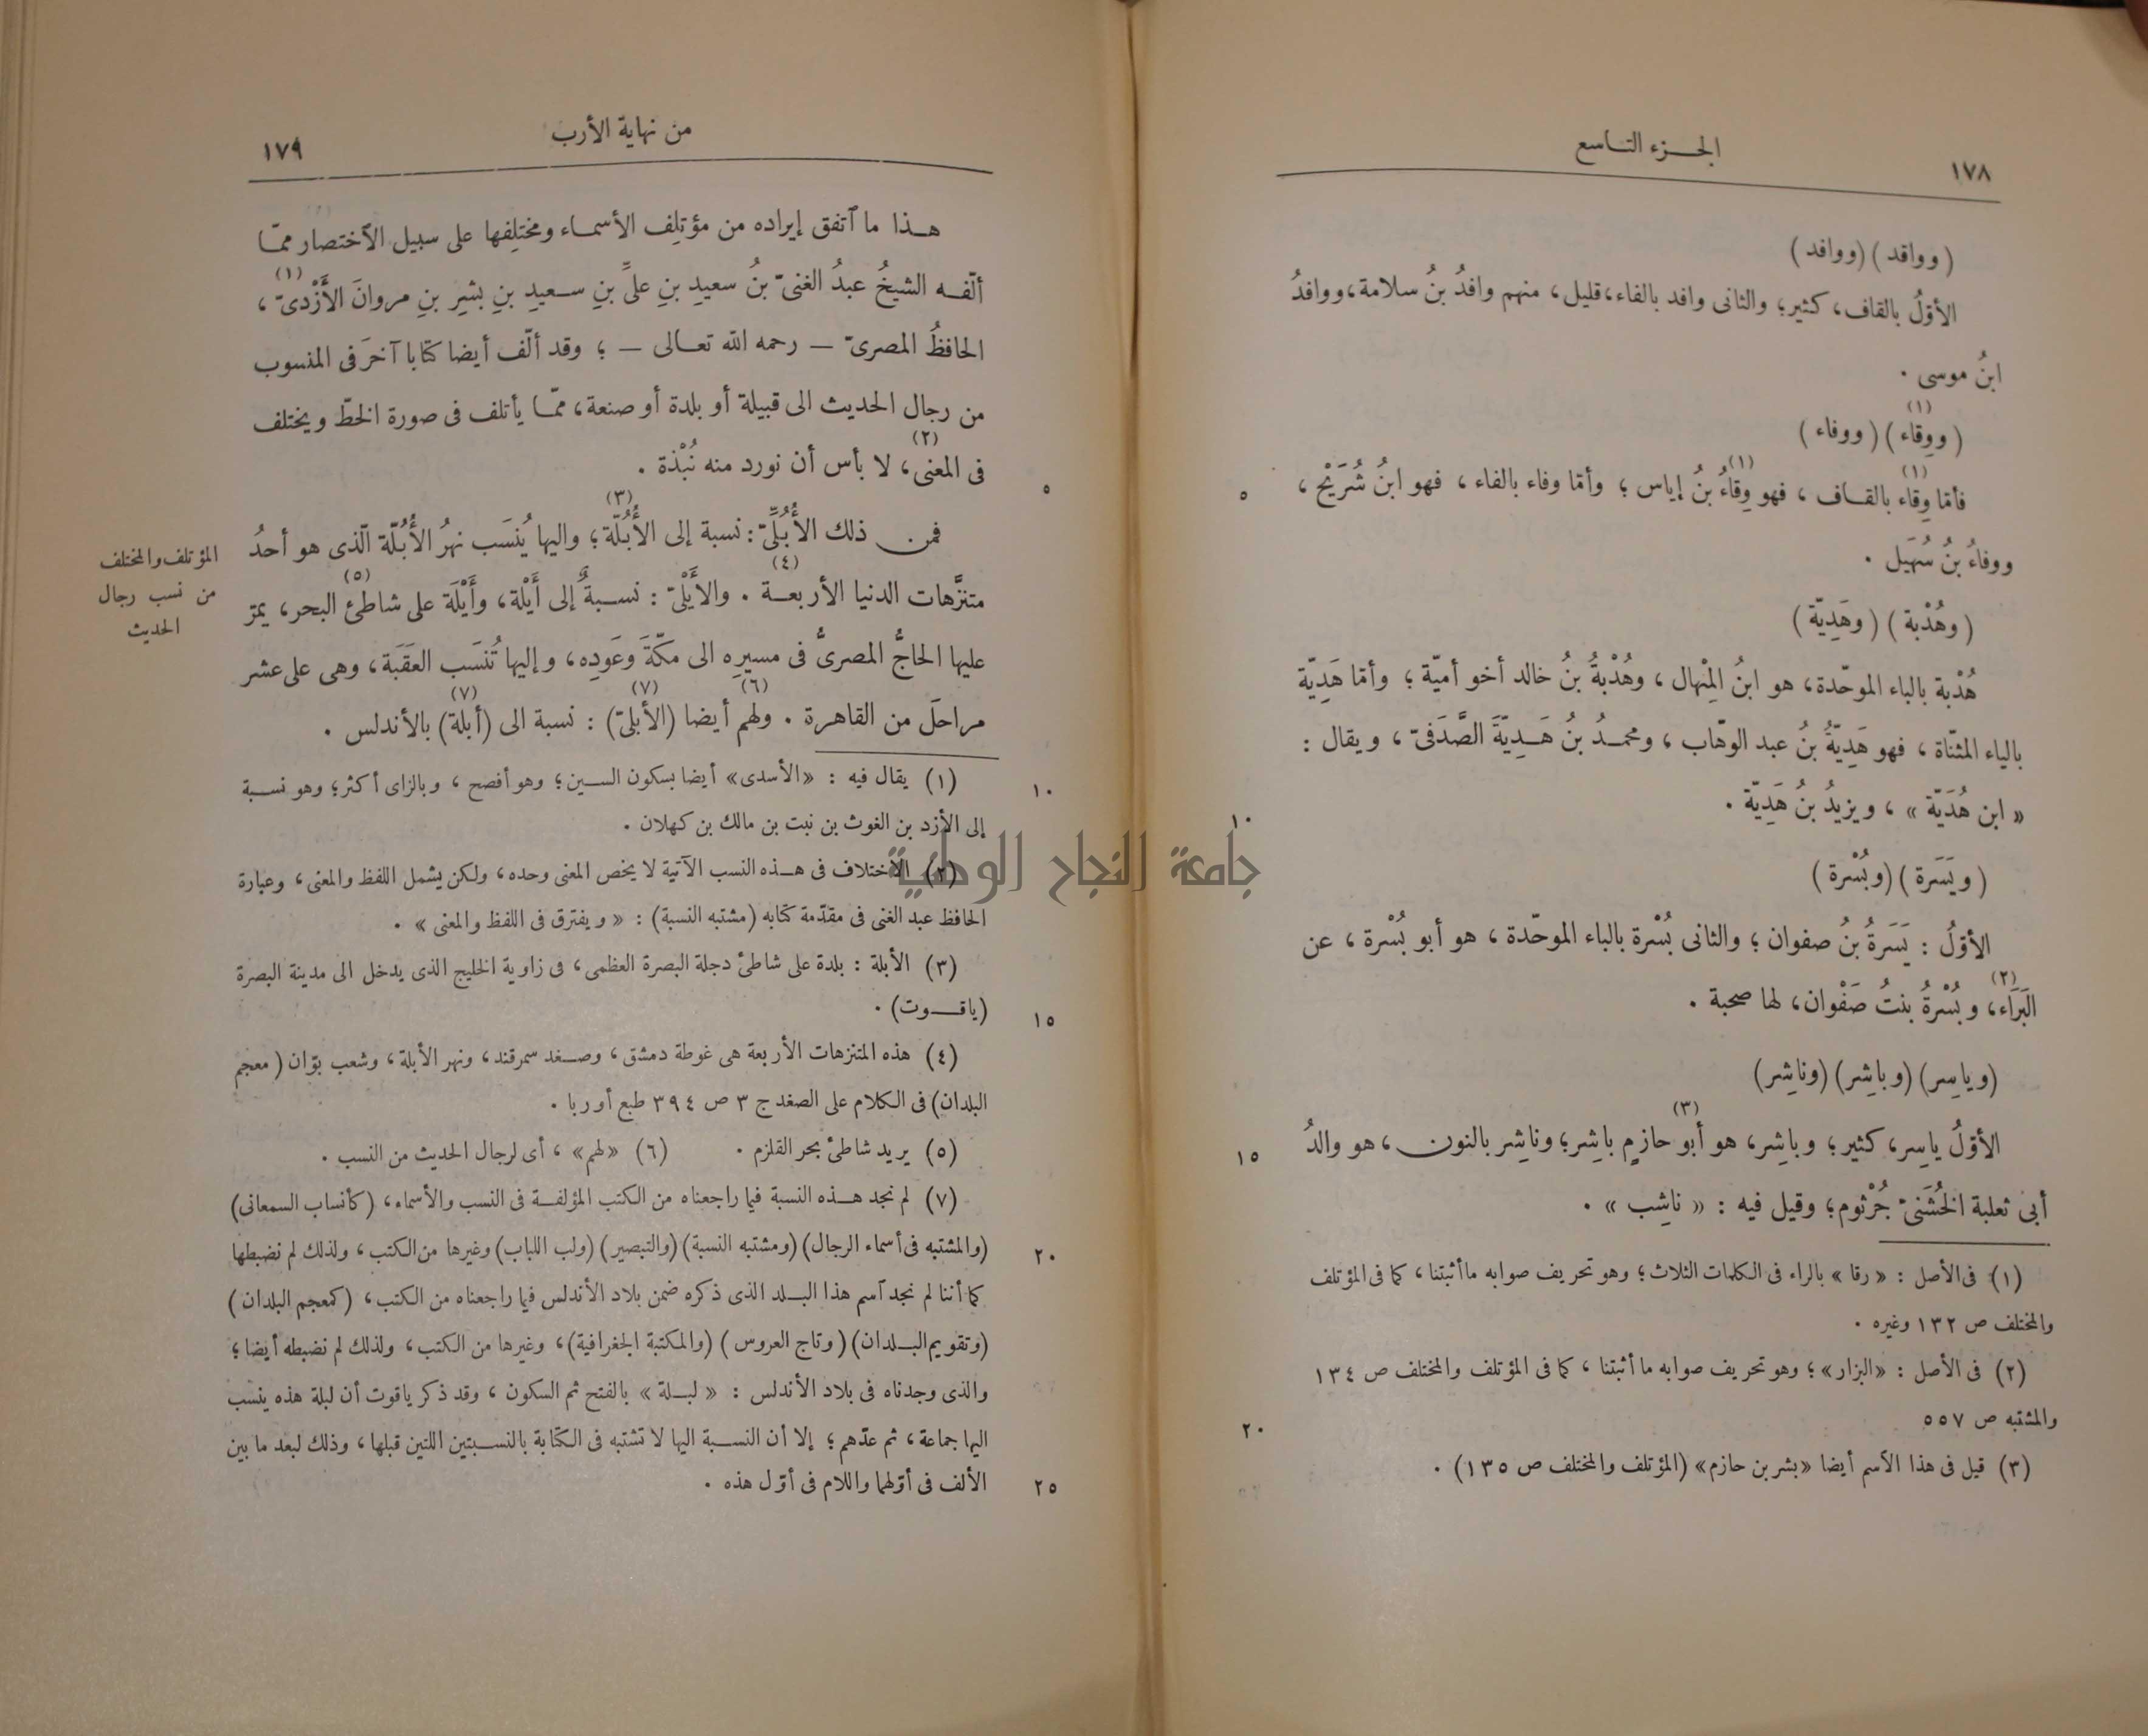 ١٧٨
الجـزء التـاسع
( وواقد ) ( ووافد )
الأوّلُ بالقاف، كثير؛ والثانى وافد بالفاء، قليل، منهم وافدُ بنُ سلامة، ووافدُ
ابنُ موسى .
( ووِقاء (١) ) ( ووفاء )
فأمّا وِقاء (١) بالقـاف ، فهو وِقاءُ (١) بنُ إياس ؛ وأمّا وفاء بالفاء ، فهو ابنُ شُرَيْح ،
ووفاءُ بنُ سُهَيل .
( وهُدْبة ) ( وهَدِيّة )
هُدْبة بالباء الموحّدة، هو ابنُ المِنْهال ، وهُدْبةُ بنُ خالد أخو أميّة ؛ وأمّا هَدِيّة
بالياء المثنّاة ، فهو هَدِيّةُ بنُ عبد الوهّاب ، ومحمـدُ بنُ هَـدِيّةَ الصَّدَفىّ ، ويقال :
« ابن هُدَيّة » ، ويزيدُ بنُ هَدِيّة .
١٠
( ويَسَرة ) ( وبُسْرة )
الأوّلُ : يَسَرةُ بنُ صفوان ؛ والثانى بُسْرة بالباء الموحّدة ، هو أبو بُسْرة ، عن
البَرَاء (٢)، وبُسْرةُ بنتُ صَفْوان، لها صحبة .
(وياسِر) (وباشِر) (وناشِر)
الأوّلُ ياسِر، كثير؛ وباشِر، هو أبو حازمٍ (٣) باشِر؛ وناشِر بالنون ، هو والدُ
١٥
أبى ثعلبة الخُشَنىّ جُرْثوم؛ وقيل فيه : « ناشِب » .
(١) فى الأصل : « رقا » بالراء فى الكلمات الثلاث ؛ وهو تحريف صوابه ما أثبتنا ، كما فى المؤتلف
والمختلف ص ١٣٢ وغيره .
(٢) فى الأصل : «البزار» ؛ وهو تحريف صوابه ما أثبتنا ، كما فى المؤتلف والمختلف ص ١٣٤
والمشتبه ص ٥٥٧
٢٠
(٣) قيل فى هذا الاسم أيضا «بشر بن حازم» (المؤتلف والمختلف ص ١٣٥) .
من نهاية الأرب
١٧٩
هـذا ما ٱتفق إيراده من مؤتلِف الأسمـاء ومختلِفها على سبيل الٱختصار ممّـا
ألّفـه الشيخُ عبدُ الغنىّ بنُ سعيدِ بنِ علىِّ بنِ سـعيدِ بنِ بشيرِ بنِ مروانَ الأَزْدىّ (١) ،
الحافظُ المصرىّ — رحمه الله تعـالى — ؛ وقد ألّف أيضا كتابا آخرَ فى المنسوب
من رجال الحديث الى قبيلة أو بلدة أو صنعة، ممّـا يأتلف فى صورة الخطّ ويختلف
فى المعنى (٢)، لا بأس أن نورد منه نُبْذة .
٥
فمن ذلك الأُبُلّىّ : نسبة إلى الأُبُلّة (٣)؛ واليها يُنسَب نهرُ الأُبُلّة الّذى هو أحدُ
المؤتلف والمختلف
من نسب رجال
الحديث
متنزَّهات الدنيا الأربعـة (٤) . والأَيْلىّ : نسـبةٌ إلى أَيْلة، وأَيْلَة على شاطئ (٥) البحر، يمرّ
عليها الحاجُّ المصرىُّ فى مسيرِه الى مكّةَ وعَودِه، وإليها تُنسَب العَقَبة، وهى على عشر
مراحلَ من القاهرة . ولهم (٦) أيضا (الأبلىّ) (٧) : نسبة الى (أبلة) (٧) بالأندلس .
(١) يقال فيه : «الأسدى» أيضا بسكون السـين؛ وهو أفصح ، وبالزاى أكثر؛ وهو نسـبة
١٠
إلى الأزد بن الغوث بن نبت بن مالك بن كهلان .
(٢) الاختلاف فى هـذه النسب الآتية لا يخص المعنى وحده، ولكن يشمل اللفظ والمعنى، وعبارة
الحافظ عبد الغنى فى مقدّمة كتابه (مشتبه النسبة) : « ويفترق فى اللفظ والمعنى » .
(٣) الأبلة : بلدة على شاطئ دجلة البصرة العظمى، فى زاوية الخليج الذى يدخل الى مدينة البصرة
(ياقـوت) .
١٥
(٤) هذه المتنزهات الأربعة هى غوطة دمشق، وصـغد سمرقند، ونهر الأبلة، وشعب بوّان (معجم
البلدان) فى الكلام على الصغد ج ٣ ص ٣٩٤ طبع أوربا .
(٥) يريد شاطئ بحر القلزم . (٦) «لهم» ، أى لرجال الحديث من النسب .
(٧) لم نجد هـذه النسبة فيما راجعناه من الكتب المؤلفـة فى النسب والأسماء، (كأنساب السمعانى)
(والمشتبه فى أسماء الرجال) (ومشتبه النسبة) (والتبصير) (ولب اللباب) وغيرها من الكتب، ولذلك لم نضبطها
٢٠
كما أننا لم نجد ٱسم هذا البـلد الذى ذكره ضمن بلاد الأندلس فيما راجعناه من الكتب، (كمعجم البلدان)
(وتقويم البـلدان) (وتاج العروس) (والمكتبة الجغرافية)، وغيرها من الكتب، ولذلك لم نضبطه أيضا؛
والذى وجدناه فى بلاد الأندلس : « لبـلة » بالفتح ثم السكون ، وقد ذكر ياقوت أن لبلة هذه ينسب
اليها جماعة، ثم عدّهم؛ إلا أن النسـبة اليها لا تشتبه فى الكتابة بالنسـبتين اللتين قبلها، وذلك لبعد ما بين
الألف فى أوّلهما واللام فى أوّل هذه .
٢٥
جامعة النجاح الوطنية